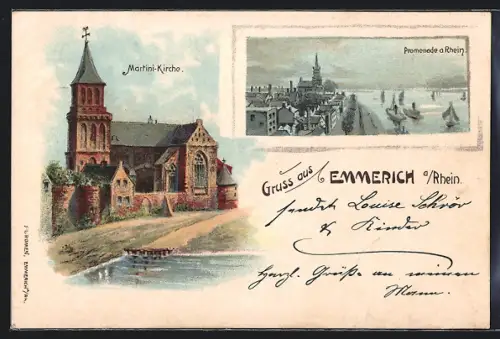 Martini-Kirche.
Promenade a Rhein.
Gruss aus EMMERICH a/Rhein.
sendet Louise Schrör
& Kinder
Herzl. Grüße an meinen
Mann.